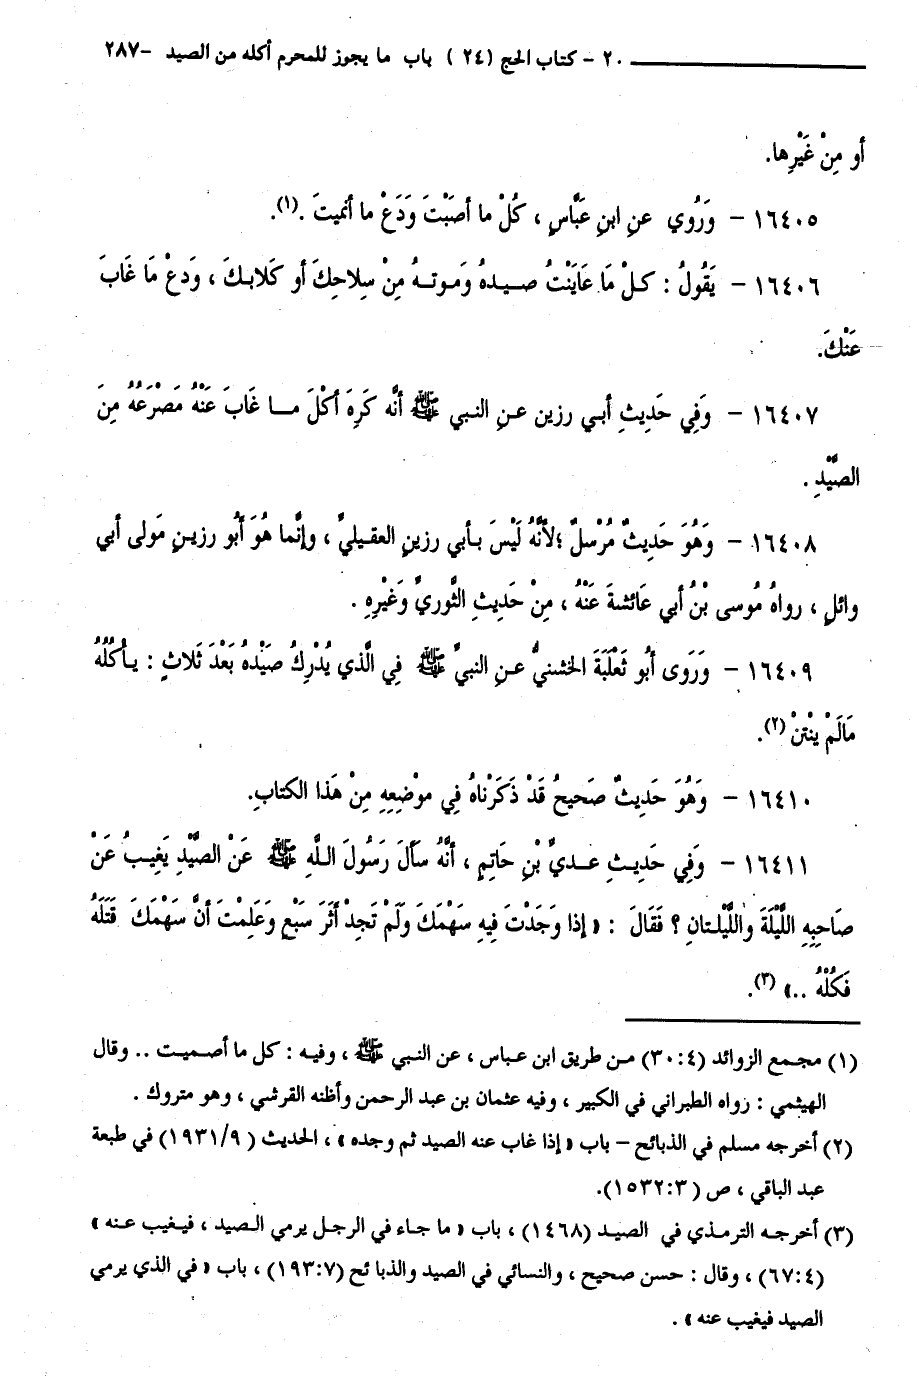 ٢٠ - كتاب الحج (٢٤) باب ما يجوز للمحرم أكله من الصيد -٢٨٧
أو مِنْ غَيْرِها.
١٦٤٠٥ - وَرُوي عنِ ابنِ عَبَّاسٍ ، كُلْ ما أصَبْتَ وَدَعْ ما أنْميتَ .(١).
١٦٤٠٦ - يَقُولُ : كـلْ مَا عَايَنْتُ صـيدهُ وَمـوتـهُ مِنْ سِلاحِكَ أو كَلابـكَ ، وَدعْ مَا غَابَ
عَنْكَ.
١٦٤٠٧ - وَفِي حَدِيثِ أبـي رزين عـنِ النـبي ﷺ أنَّه كَرِهَ أكْلَ مــا غَابَ عَنْهُ مَصْرَعُهُ مِنَ
الصَّيْدِ .
١٦٤٠٨ - وَهُوَ حَدِيثٌ مُرْسلٌ ؛لأنَّهُ لَيْسَ بـأبي رزينٍ العقـيليِّ ، وإنَّما هُوَ أبُو رزيـنٍ مَولى أبي
وائلٍ ، رواهُ مُوسى بْنُ أبي عَائشةَ عَنْهُ ، مِنْ حَدِيثِ الثَّوريِّ وَغَيْرِهِ .
١٦٤٠٩ - وَرَوَى أبُو ثَعْلَبَةَ الخشنيُّ عـنِ النبيِّ ﷺ فِي الَّذي يُدْرِكُ صَيْدهُ بَعْدَ ثَلاثٍ : يـأكُلُهُ
مَالَمْ ينْتنْ (٢).
١٦٤١٠ - وَهُوَ حَدِيثٌ صَحيحُ قَدْ ذَكَرْناهُ فِي موْضِعِهِ مِنْ هَذا الكتابِ.
١٦٤١١ - وَفِي حَدِيـثِ عــديِّ بْنِ حَاتِمٍ ، أنَّهُ سَألَ رَسُولَ اللَّهِ ﷺ عَنْ الصَّيْدِ يَغِيـبُ عَنْ
صَاحِبِهِ اللَّيْلَةَ واللَّيْلـتانِ ؟ فَقَالَ : « إذا وَجَدْتَ فِيهِ سَهْمَكَ وَلَمْ تَجدْ أثَرَ سَبْعٍ وَعَلِمْتَ أنَّ سَهْمَكَ قَتَلَهُ
فَكُلْهُ ..» (٣).
(١) مجمع الزوائد (٤: ٣٠) مـن طريق ابن عـباس ، عن النـبي ﷺ ، وفيـه : كل ما أصـميت .. وقال
الهيثمي : رواه الطبراني في الكبير ، وفيه عثمان بن عبد الرحمن وأظنه القرشي ، وهو متروك .
(٢) أخرجه مسلم في الذبائح - باب « إذا غاب عنه الصيد ثم وجده » ، الحديث ( ٩/ ١٩٣١) في طبعة
عبد الباقي ، ص ( ٣: ١٥٣٢).
(٣) أخرجـه الترمـذي في الصـيد (١٤٦٨) ، باب « ما جـاء في الرجـل يرمي الـصيد ، فيـغيب عـنه »
(٤: ٦٧) ، وقال : حسن صحيح ، والنسائي في الصيد والذبا ئح (٧: ١٩٣) ، باب « في الذي يرمي
الصيد فيغيب عنه » .